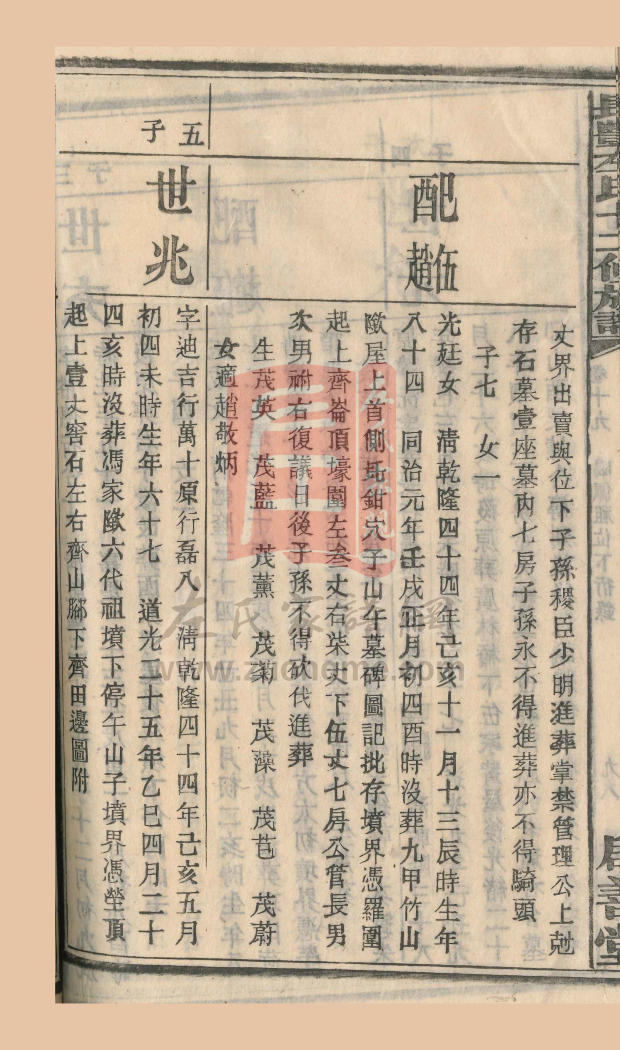 丈界出賣與位下子孫稷臣少明進葬掌禁管理公上尅
存石墓壹座墓內七房子孫永不得進葬亦不得騎頭
子七　女一
配趙伍
光廷女　淸乾隆四十四年己亥十一月十三辰時生年
八十四　同治元年壬戌正月初四酉時沒葬九甲竹山
歐屋上首側托鉗穴子山午墓碑圖記批存墳界憑羅圍
起上齊崙頂壕圍左叁丈右柒丈下伍丈七房公管長男
次男祔右復議日後子孫不得砍伐進葬
生茂英　茂藍　茂薰　茂菊　茂藻　茂芑　茂蔚
女適趙敬炳
五子
世兆
字迪吉行萬十原行磊八　淸乾隆四十四年己亥五月
初四未時生年六十七　道光二十五年乙巳四月二十
四亥時沒葬馮家歐六代祖墳下停午山子墳界憑塋頂
起上壹丈窖石左右齊山腳下齊田邊圖附
左氏家譜網
www.zuohome.com